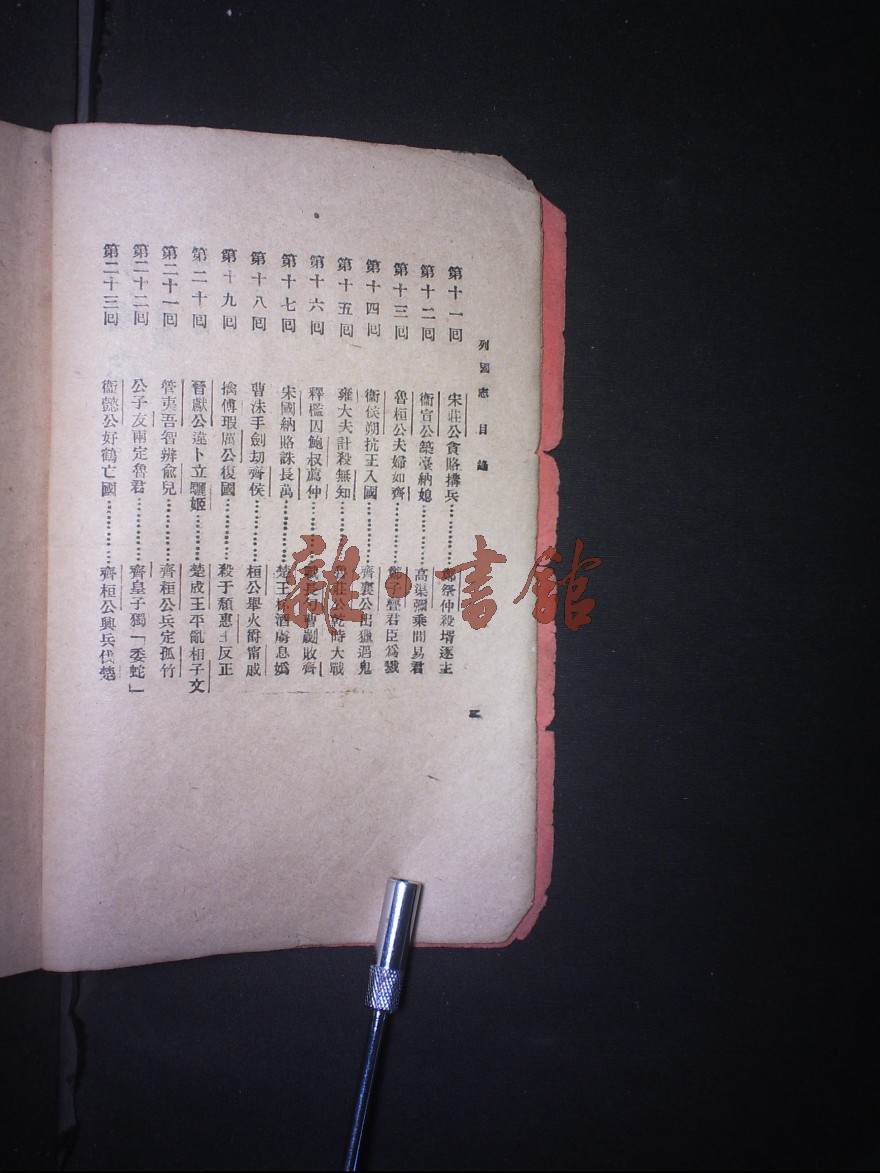 列國志目錄
第十一回 宋莊公貪賂搆兵…………鄭祭仲殺壻逐主
第十二回 衞宣公築臺納媳…………高渠彌乘間易君
第十三回 魯桓公夫婦如齊…………鄭子亹君臣爲戮
第十四回 衞侯朔抗王入國…………齊襄公出獵遇鬼
第十五回 雍大夫計殺無知…………魯莊公乾時大戰
第十六回 釋檻囚鮑叔薦仲…………戰長勺曹劌敗齊
第十七回 宋國納賂誅長萬…………楚王杯酒虜息嬀
第十八回 曹沬手劍劫齊侯…………桓公舉火爵甯戚
第十九回 擒傅瑕厲公復國…………殺子頹惠王反正
第二十回 晉獻公違卜立驪姬…………楚成王平亂相子文
第二十一回 管夷吾智辨兪兒…………齊桓公兵定孤竹
第二十二回 公子友兩定魯君…………齊皇子獨「委蛇」
第二十三回 衞懿公好鶴亡國…………齊桓公興兵伐楚
雜·書館